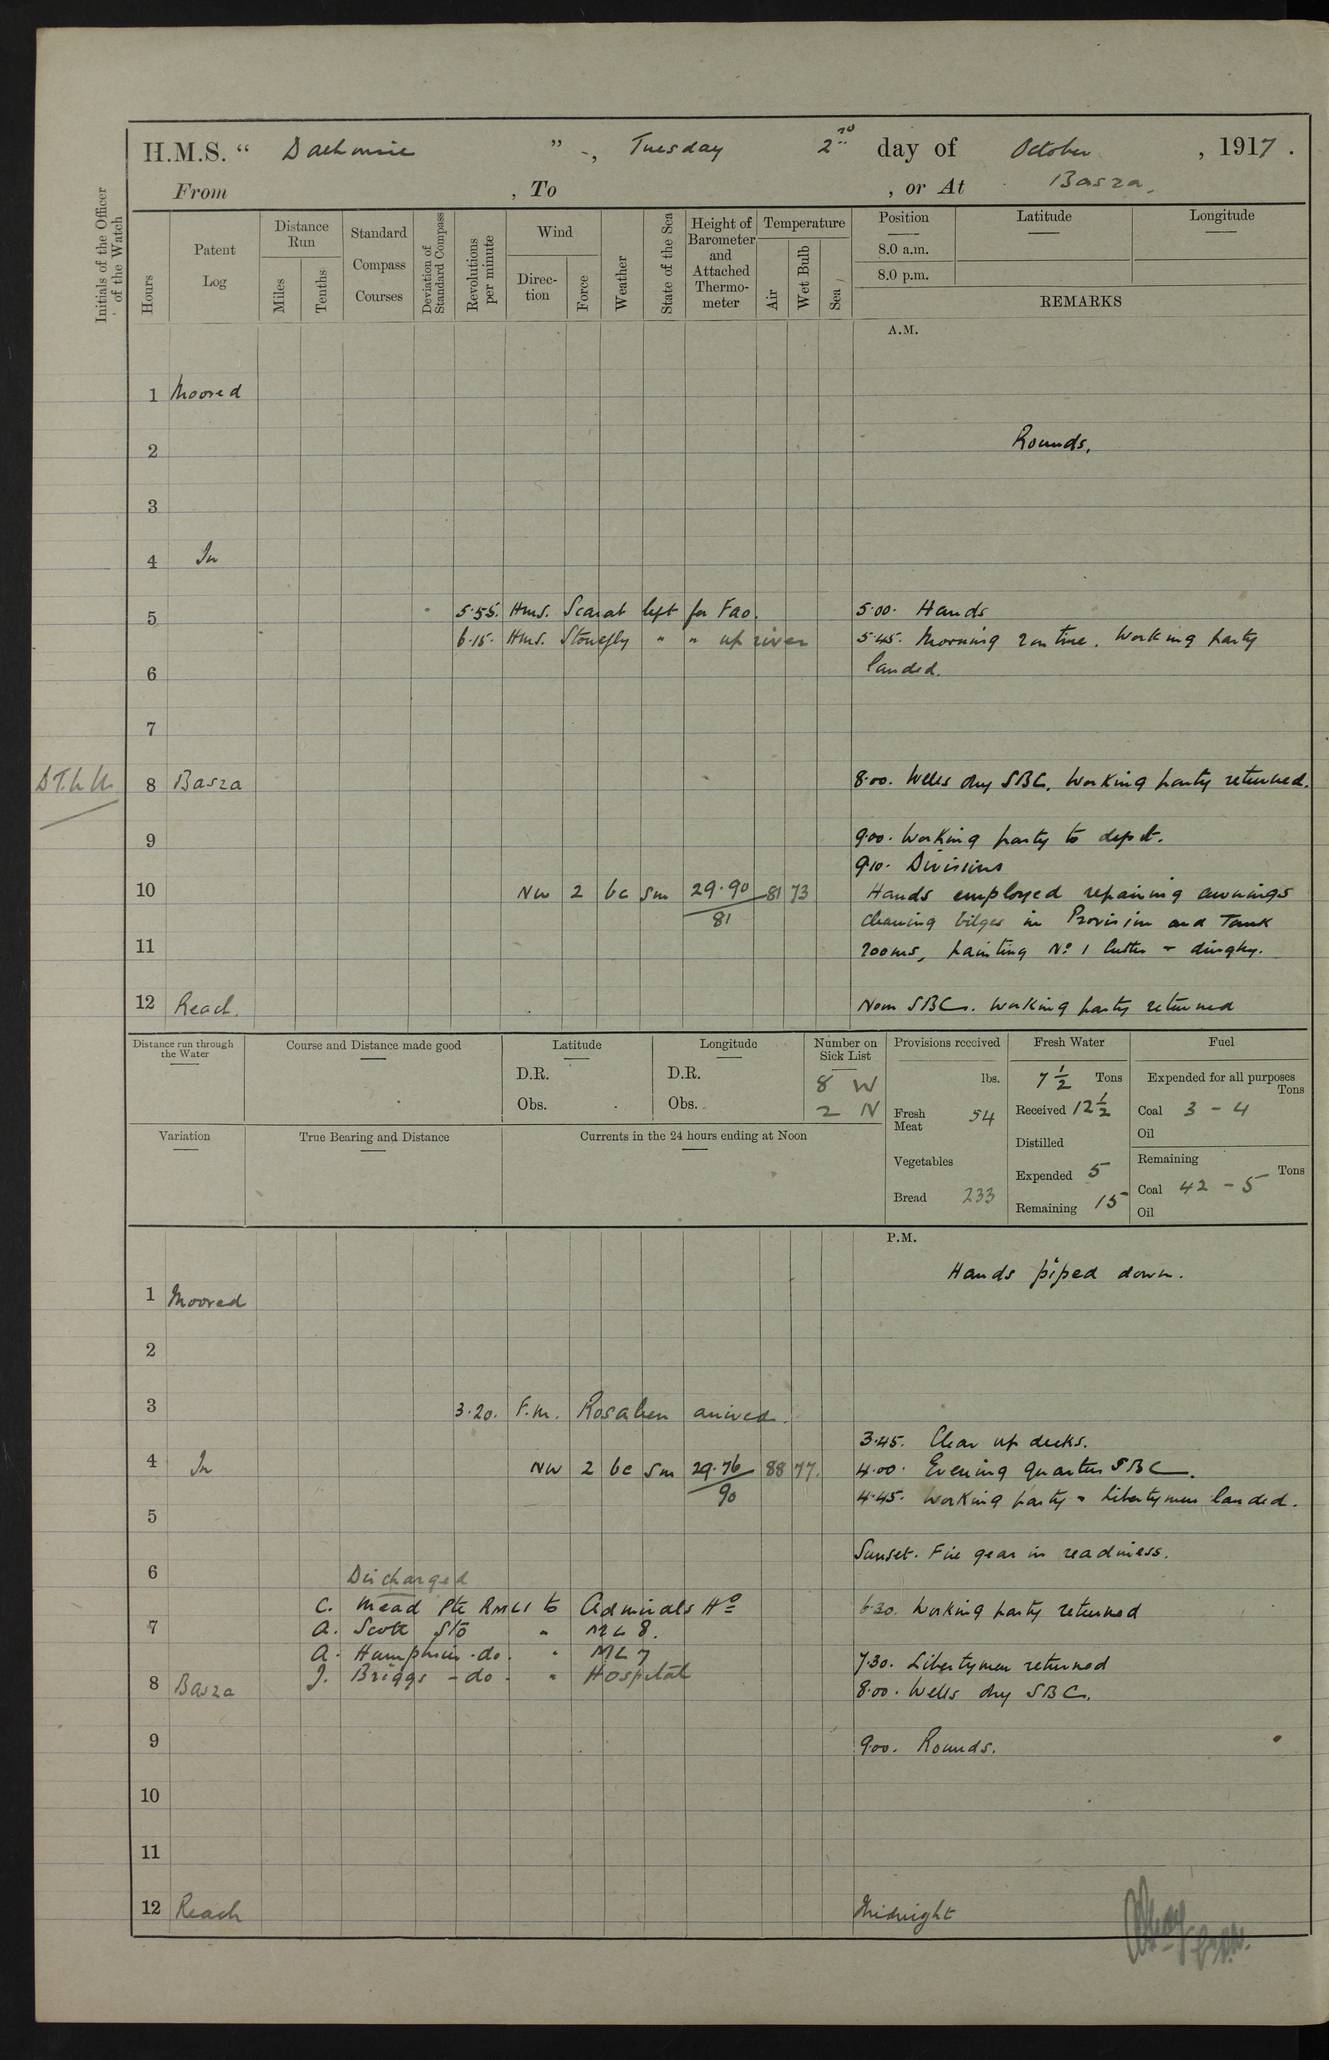 H.M.S. " Dalhousie ", Tuesday 2nd day of October, 1917.
From , To , or At Basra.
Initials of the Officer of the Watch
Hours
Patent Log
Distance Run
Miles
Tenths
Standard Compass Courses
Deviation of Standard Compass
Revolutions per minute
Wind
Direction
Force
Weather
State of the Sea
Height of Barometer and Attached Thermometer
Temperature
Air
Wet Bulb
Sea
Position
Latitude
Longitude
8.0 a.m.
8.0 p.m.
REMARKS
A.M.
1 Moored
2 Rounds.
3
4 In
5 5.55. H.M.S. Scarab left for Fao. 5.00. Hands
6.15. H.M.S. Stonefly " " up river 5.45. Morning routine. Working party
6 landed.
7
8 Basra 8.00. Wells dry SBC. Working party returned.
9 9.00. Working party to depot.
9.10. Divisions
10 NW 2 bc Sm 29.90 81 73 Hands employed repairing awnings
81 cleaning bilges in Provision and Tank
11 rooms, painting No 1 cutter + dinghy.
12 Reach. Noon SBC. Working party returned
Distance run through the Water
Course and Distance made good
Latitude
D.R.
Obs.
Longitude
D.R.
Obs.
Number on Sick List
8 W
2 N
Provisions received
lbs.
Fresh Meat 54
Vegetables
Bread 233
Fresh Water
7 1/2 Tons
Received 12 1/2
Distilled
Expended 5
Remaining 15
Fuel
Expended for all purposes
Tons
Coal 3 - 4
Oil
Remaining
Tons
Coal 42 - 5
Oil
Variation
True Bearing and Distance
Currents in the 24 hours ending at Noon
P.M.
Hands piped down.
1 Moored
2
3 3.20. F.M. Rosaleen arrived.
3.45. Clear up decks.
4 In NW 2 bc Sm 29.76 88 77. 4.00. Evening quarters SBC.
90 4.45. Working party + libertymen landed.
5
Sunset. Fire gear in readiness.
6 Discharged
C. Mead Pte RMLI to Admirals Ho 6.30. Working party returned
7 A. Scott Sto " ML 8.
A. Humphries - do - " ML 7 7.30. Libertymen returned
J. Briggs - do - " Hospital
8 Basra 8.00. Wells dry SBC.
9 9.00. Rounds.
10
11
12 Reach Midnight